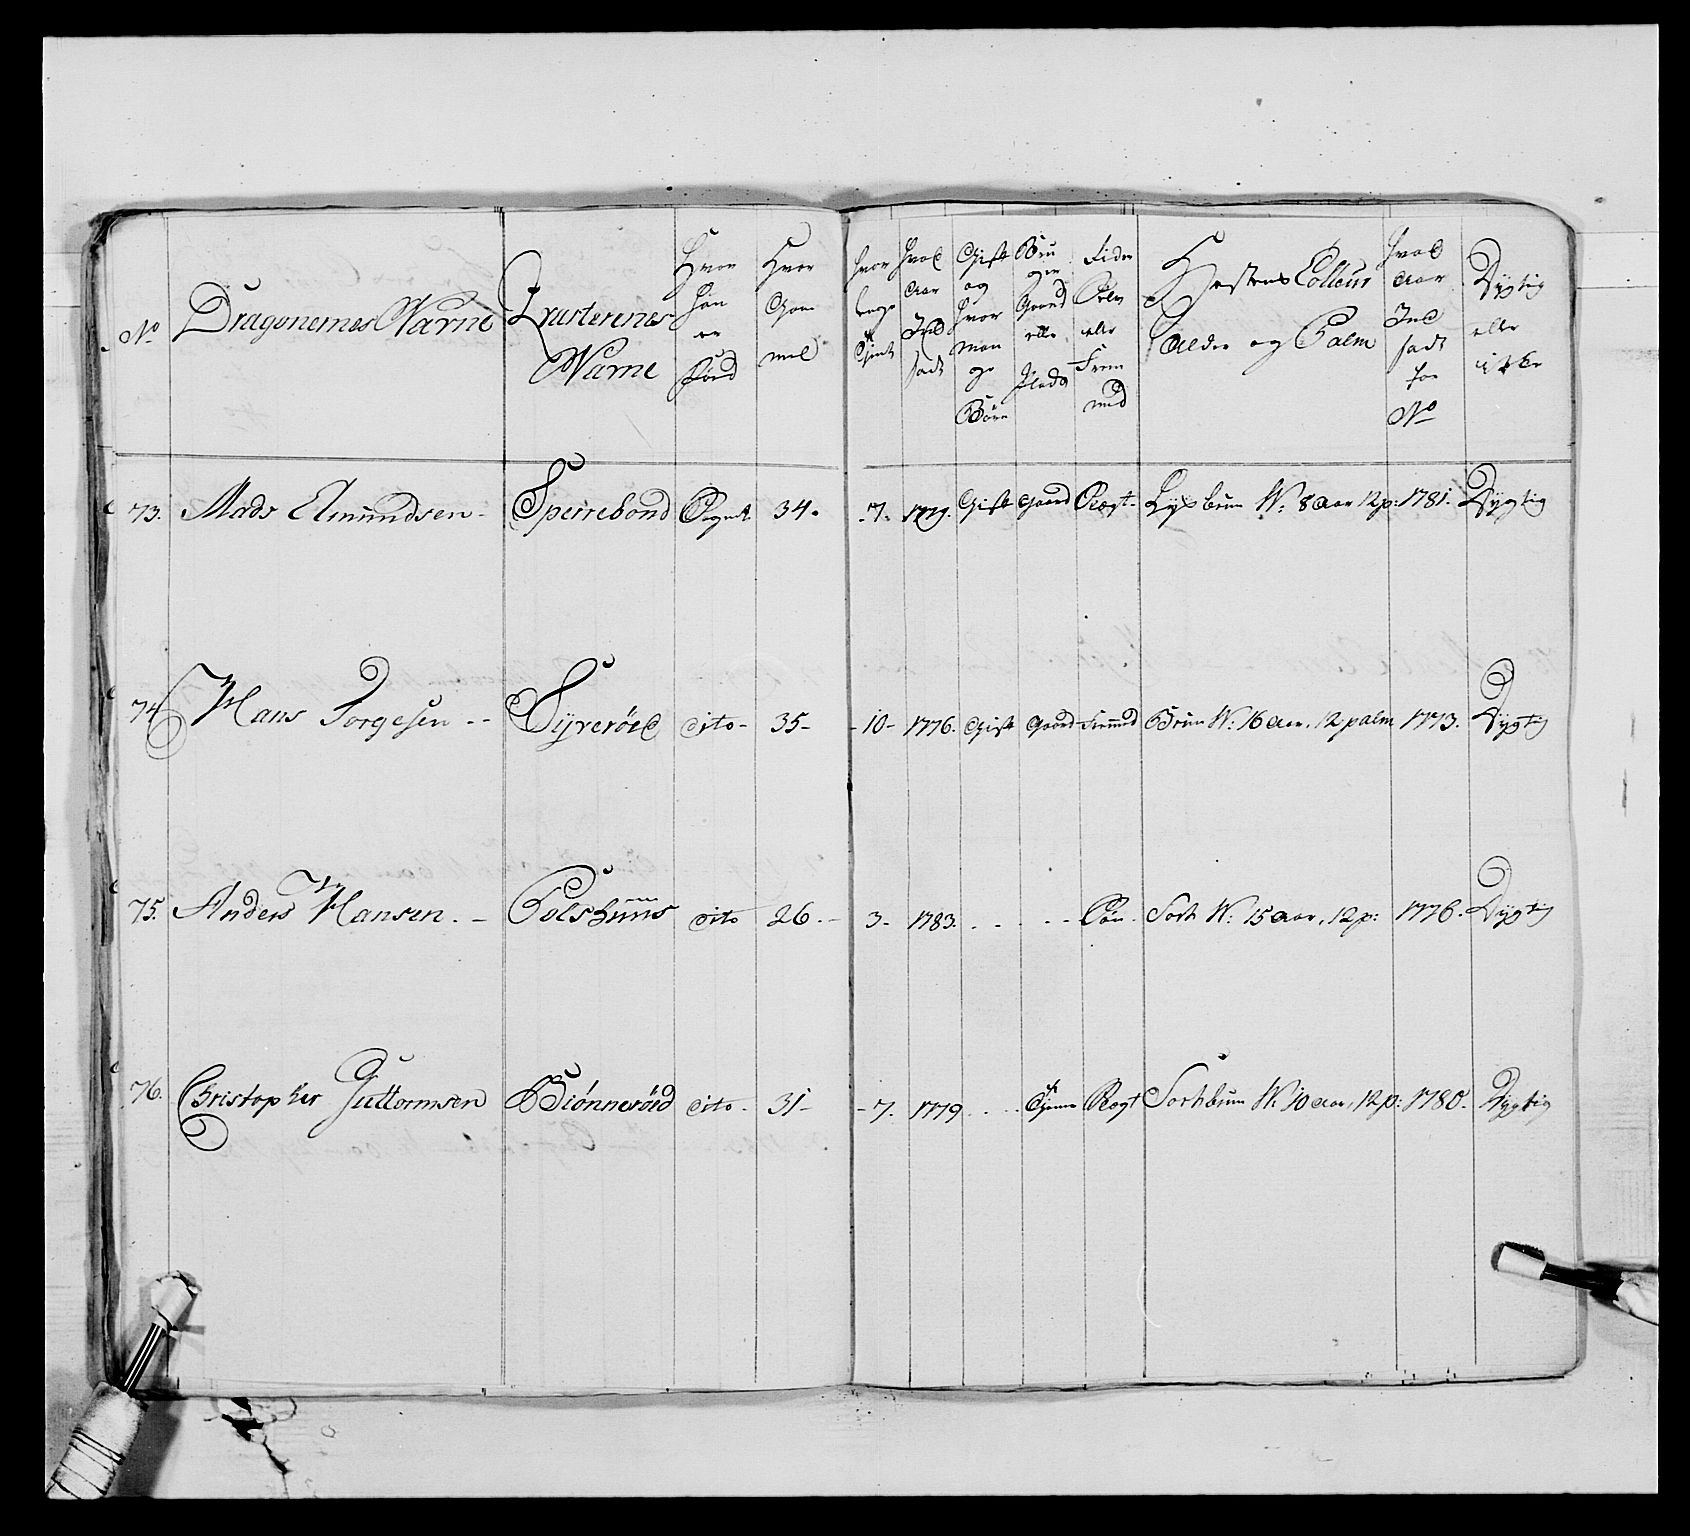 No
Dragonernes Navne
Qvarterenes
Navne
Hvor
han
er
fød
Hvor
Gam
mel
hvor
lenge
tjent
hvad
Aar
Ind
sadt
Gift
og
hvor
man
ge
Børn
Bru
ger
Gaard
eller
Plads
Finder
eller
Frem
med
Hestens Colleur
Alder og Palm
hvad
Aar
Ind
sadt
for
No
Dygtig
eller
ikke
73. Mads Amundsen - Sperrebond Egnet 34. 7. 1779. Gift Gaard Røgt. Lysbrun W: 8 Aar 12 p: 1781. Dygtig
74 Hans Torgesen -- Syveröed dito - 35 - - 10 - 1776. Gift Gaard Fremmed Brun W: 16 Aar, 12 palm 1773. Dygtig
75. Anders Hansen. - dito 26. - 3 - 1783. Sort W: 15 Aar, 12 p: 1776. Dygtig
76. Christopher Guttormsen Biönneröed dito - 31 - - 7. 1779 Tjener Røgt Sortbrun W: 10 Aar, 12 p: 1780. Dygtig